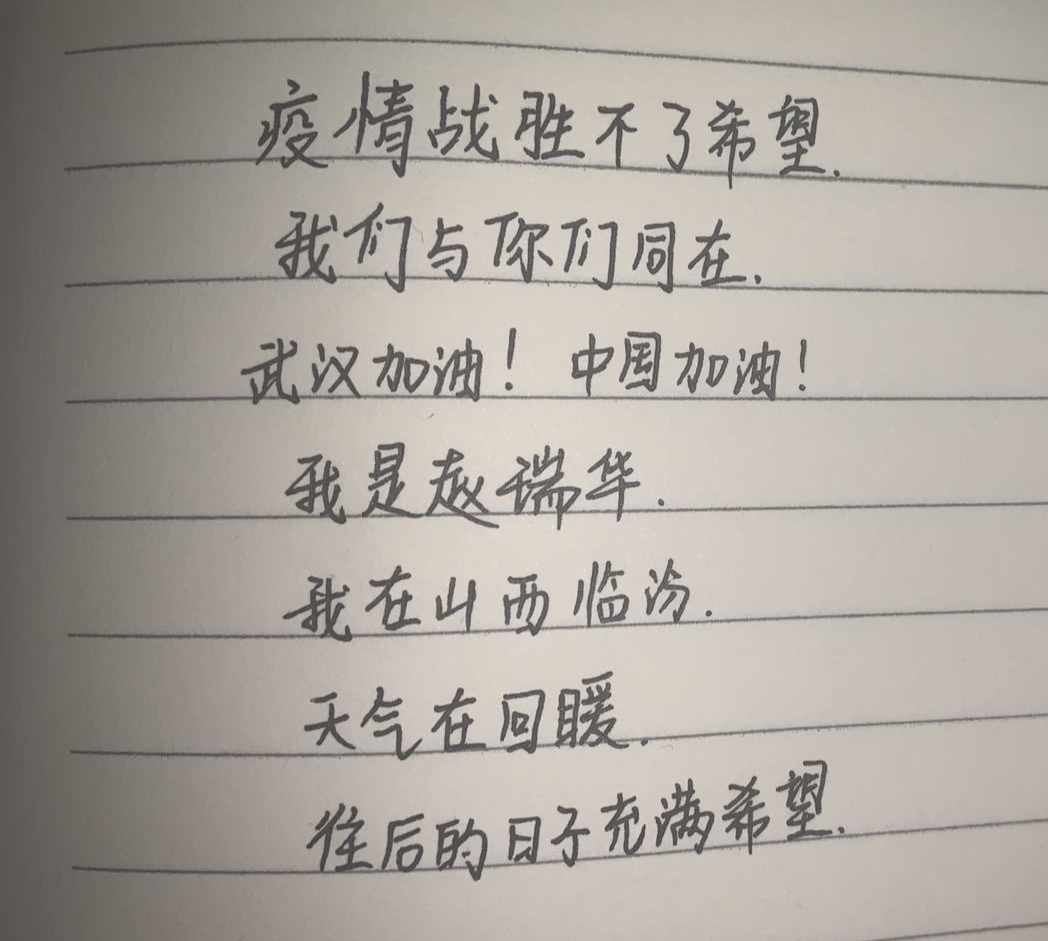 疫情战胜不了希望.
我们与你们同在.
武汉加油！ 中国加油！
我是赵瑞华.
我在山西临汾.
天气在回暖.
往后的日子充满希望.